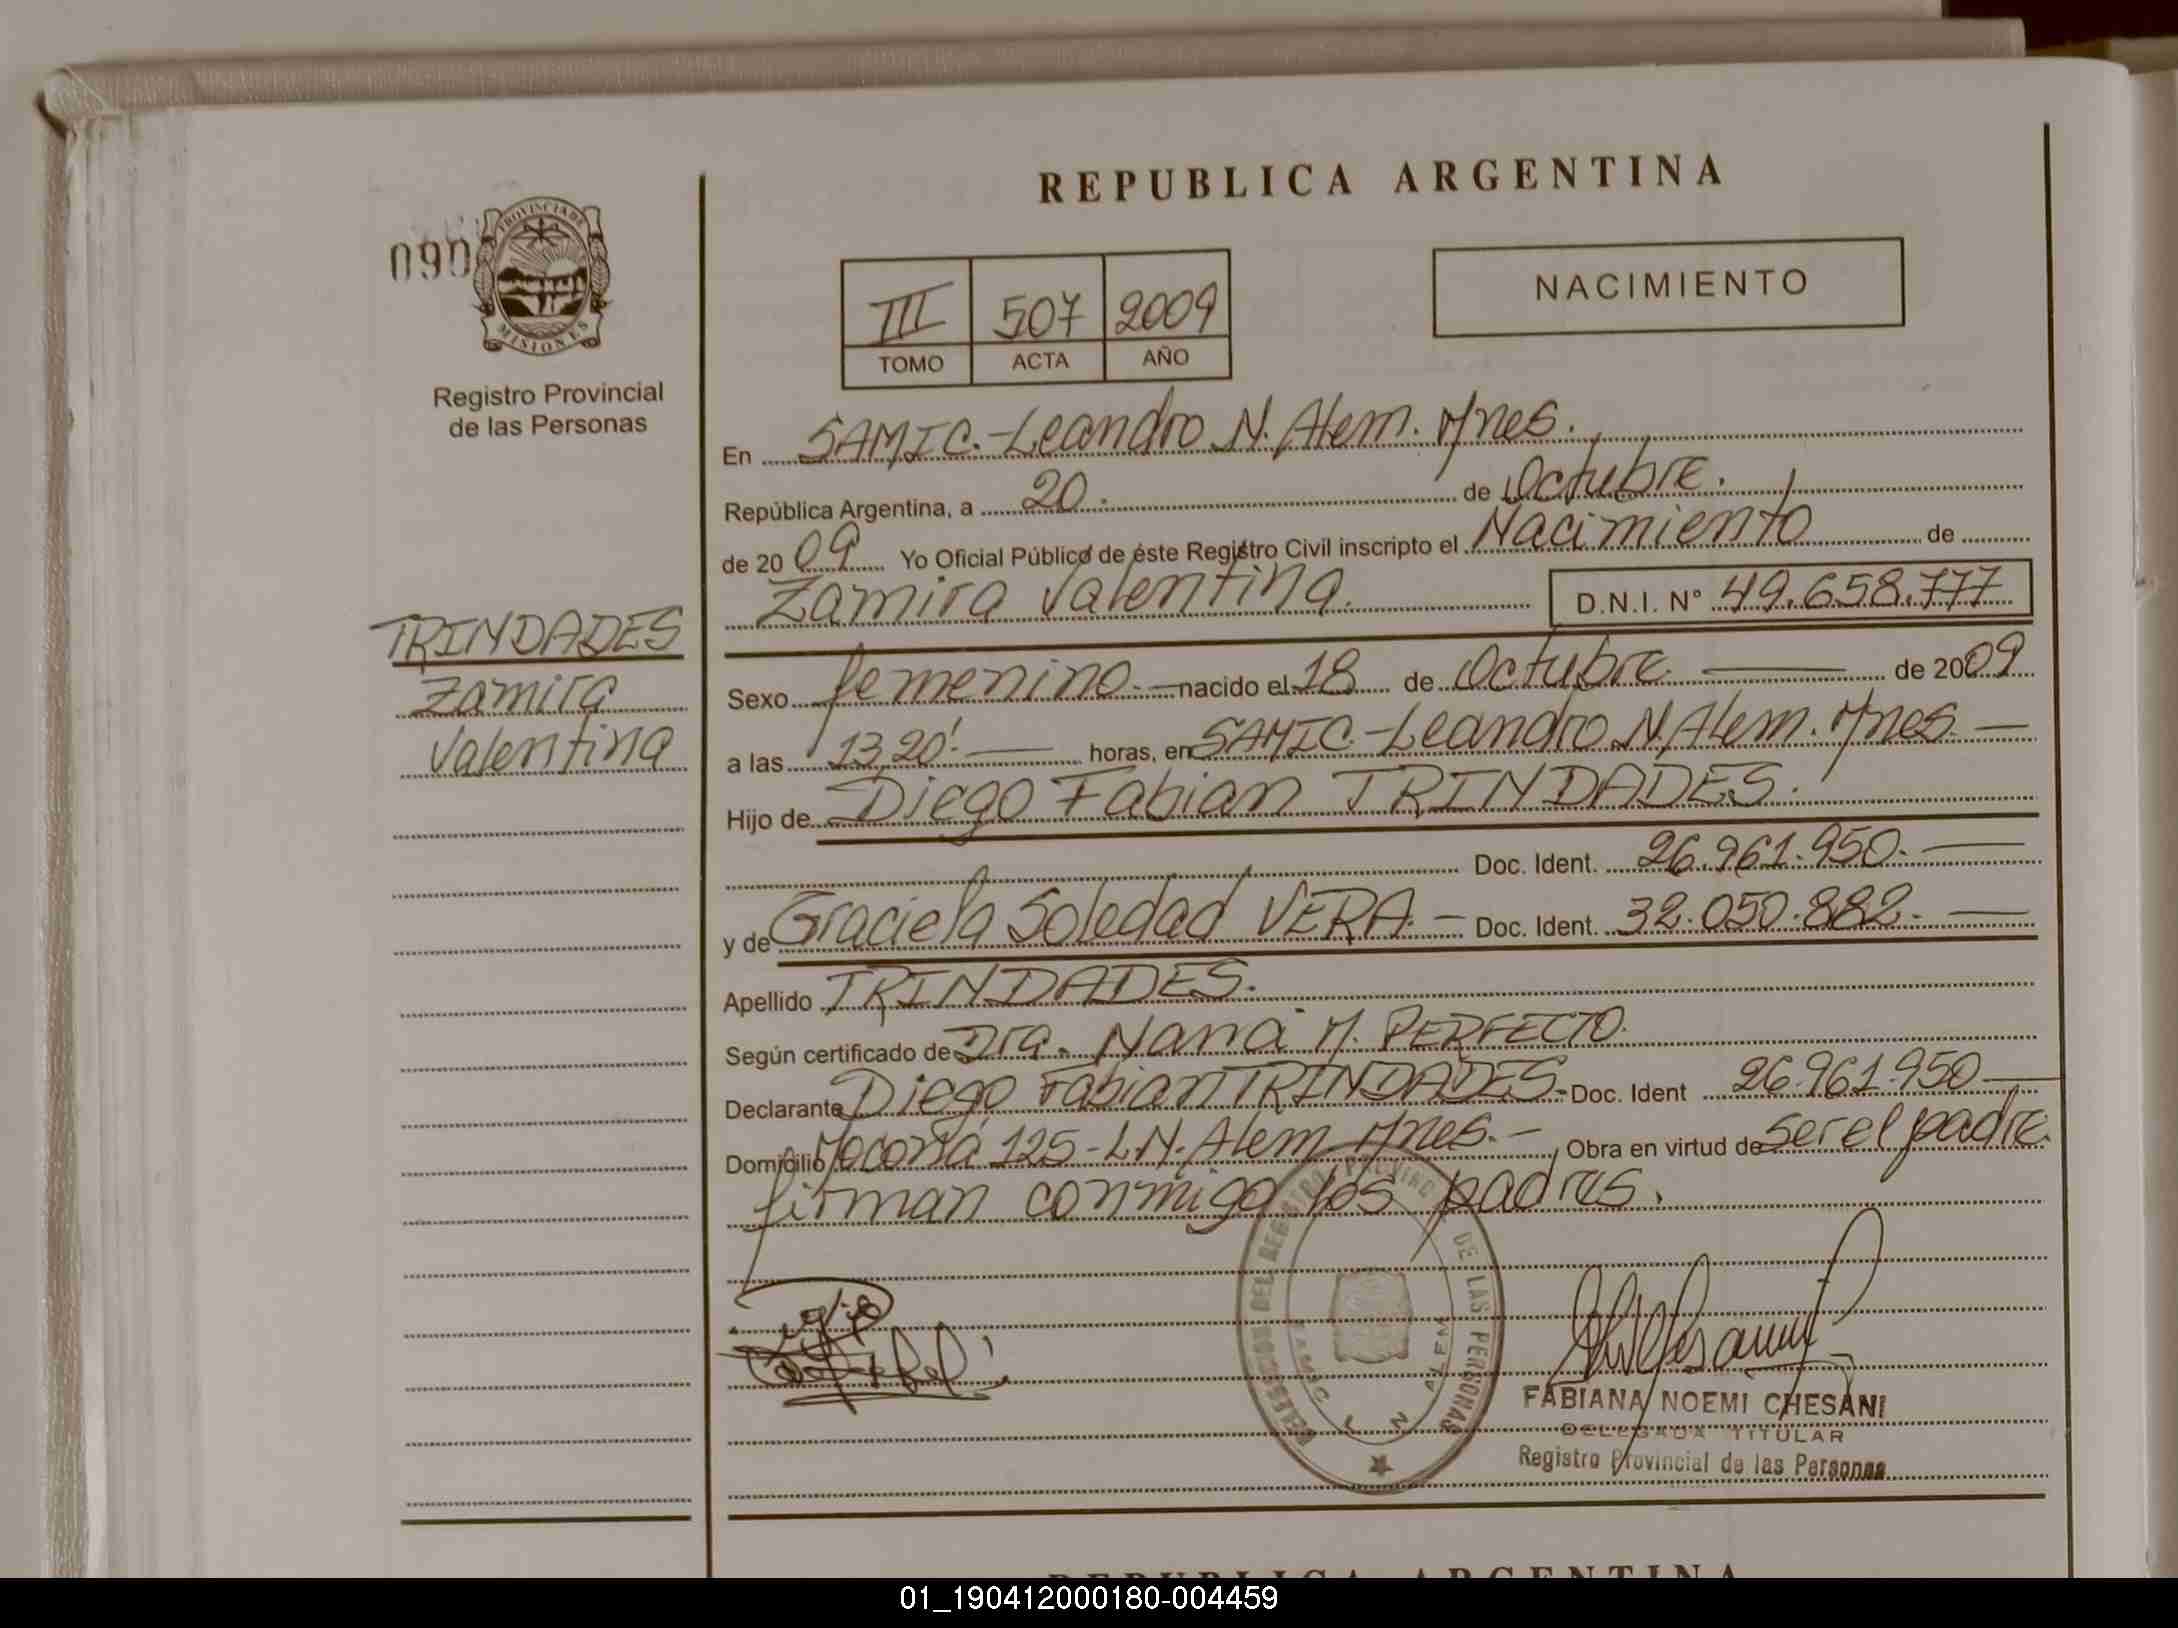 REPUBLICA ARGENTINA
090
PROVINCIA DE
MISIONES
Registro Provincial
de las Personas
III 507 2009
TOMO ACTA AÑO
NACIMIENTO
TRINDADES
Zamira
Valentina
En SAMIC.-Leandro N. Alem. Mnes.
República Argentina, a 20. de Octubre.
de 2009 Yo Oficial Público de éste Registro Civil inscripto el Nacimiento de
Zamira Valentina. D.N.I. N° 49.658.777
Sexo femenino.- nacido el 18 de Octubre de 2009
a las 13,20'.- horas, en SAMIC.-Leandro N. Alem. Mnes.-
Hijo de Diego Fabian TRINDADES.
Doc. Ident. 26.961.950.-
y de Graciela Soledad VERA.- Doc. Ident. 32.050.882.-
Apellido TRINDADES.
Según certificado de Dra. M. PERFECTO.
Declarante Diego Fabian TRINDADES.- Doc. Ident 26.961.950-
Domicilio Moconá 125-L.N. Alem Mnes.- Obra en virtud de ser el padre.
firman conmigo los padres.
DELEGACION DEL REGISTRO PROVINCIAL DE LAS PERSONAS
SAMIC L N ALEM
FABIANA NOEMI CHESANI
DELEGADA TITULAR
Registro Provincial de las Personas
REPUBLICA ARGENTINA
01_190412000180-004459